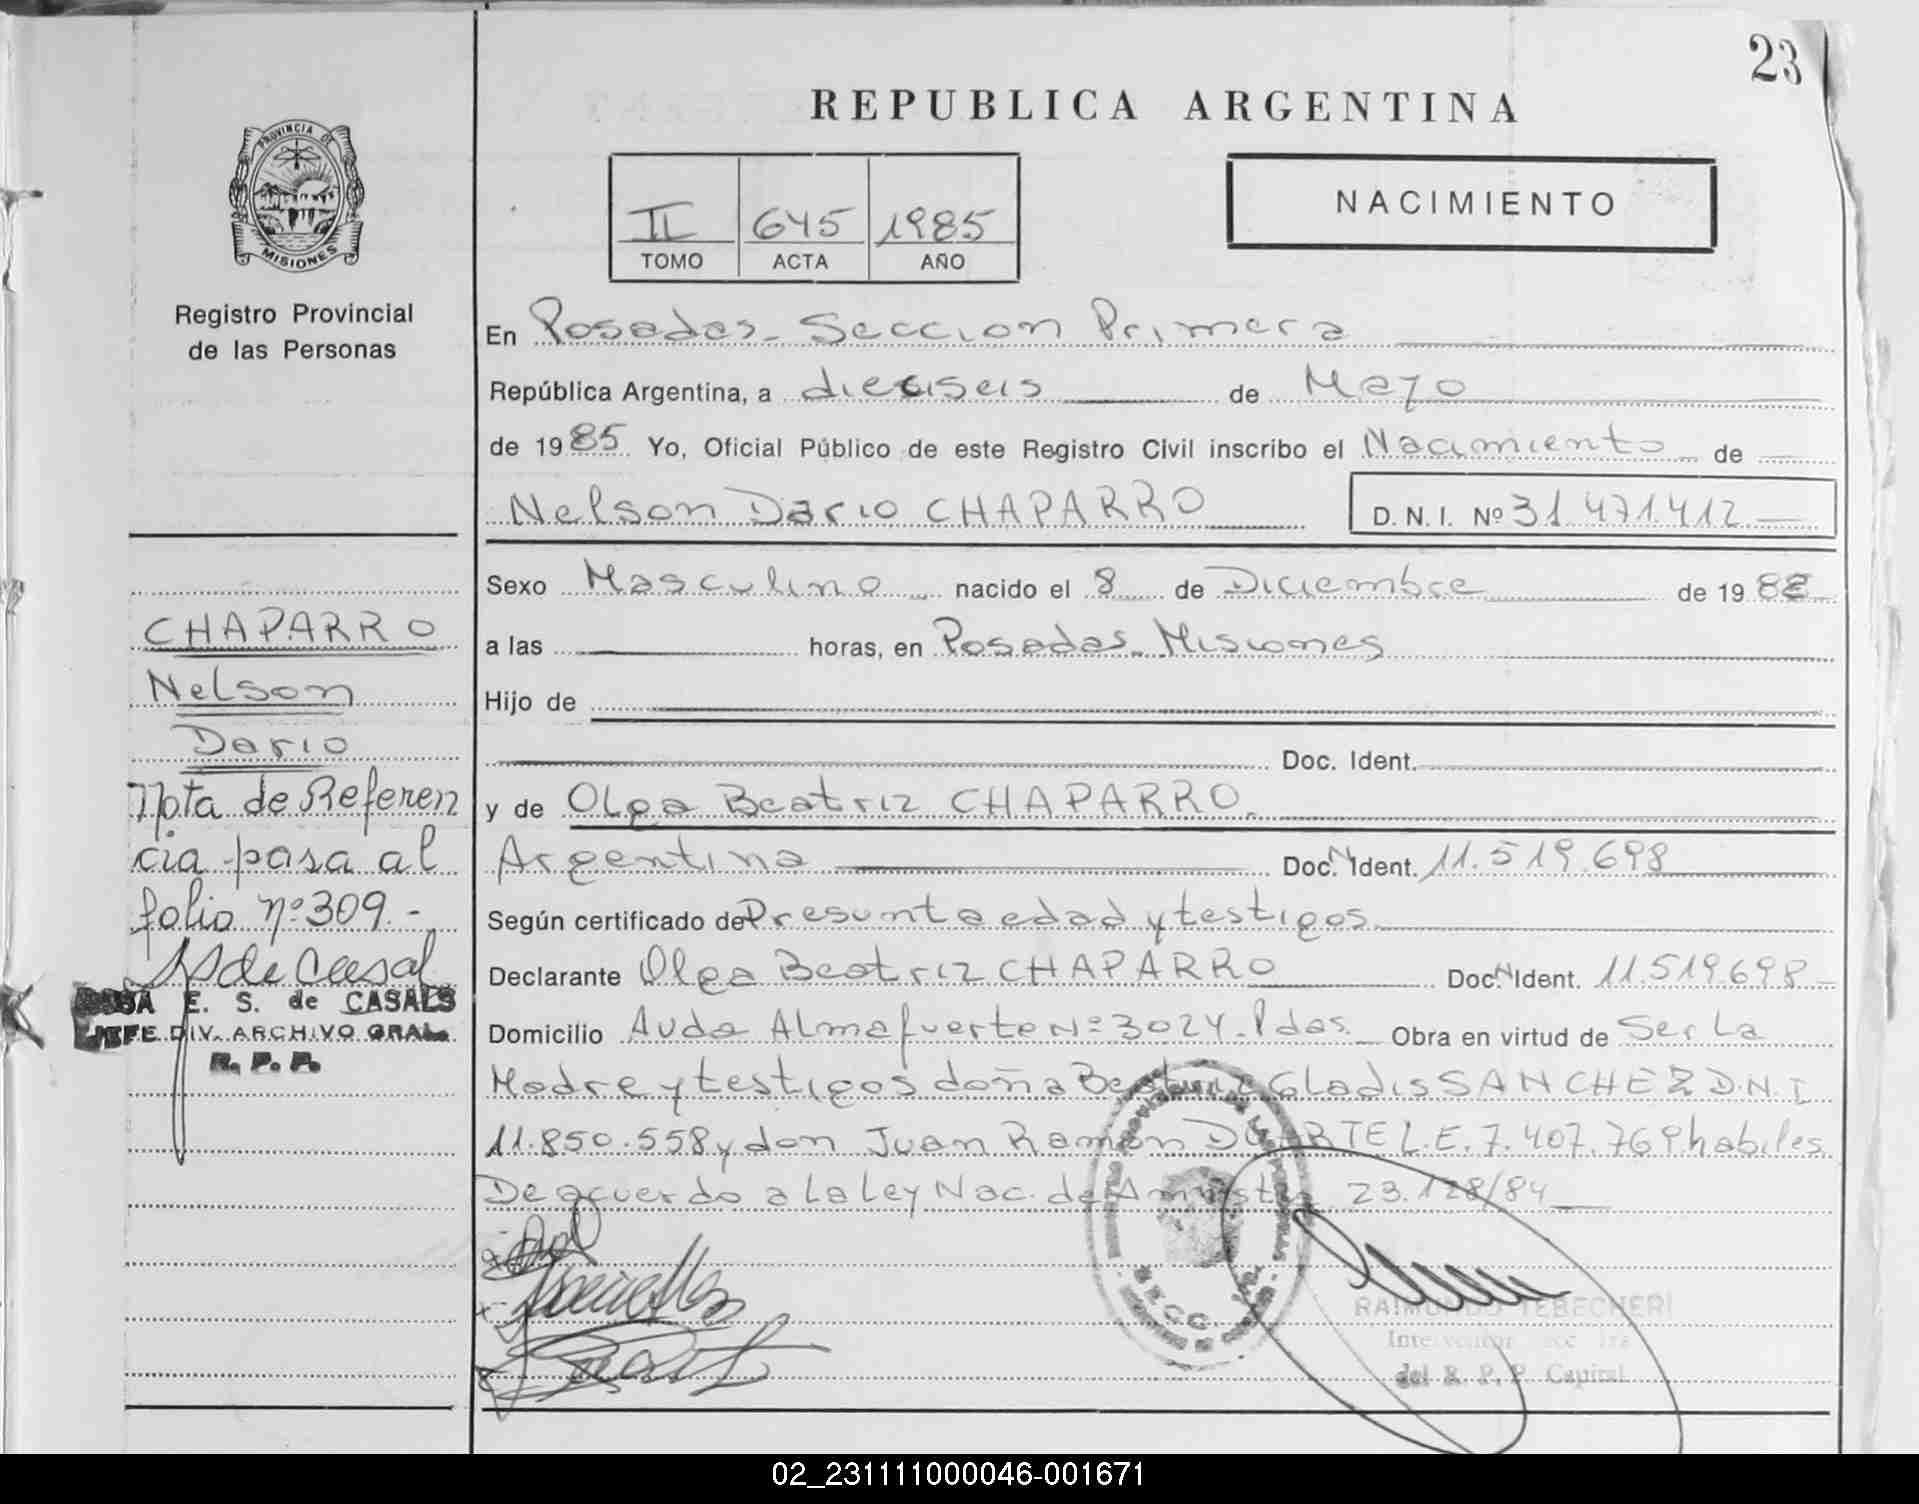 23
REPUBLICA ARGENTINA
PROVINCIA DE
MISIONES
Registro Provincial
de las Personas
II 645 1985
TOMO ACTA AÑO
NACIMIENTO
En Posadas - Seccion Primera
República Argentina, a dieciseis de Mayo
de 1985 Yo, Oficial Público de este Registro Civil inscribo el Nacimiento de
Nelson Dario CHAPARRO D.N.I. Nº 31.471.412
Sexo Masculino nacido el 8 de Diciembre de 198
a las horas, en Posadas - Misiones
Hijo de
Doc. Ident.
y de Olga Beatriz CHAPARRO.
Argentina Doc. Ident. 11.519.698
Según certificado de Presunta edad y testigos
Declarante Olga Beatriz CHAPARRO Doc. Ident. 11.519.698
Domicilio Avda Almafuerte Nº 3024 - Pdas. Obra en virtud de Ser La
Madre y testigos doña Beatriz Gladis SANCHEZ D.N.I
11.850.558 y don Juan Ramon DUARTE L.E. 7.407.769 habiles
De acuerdo a la Ley Nac. de Amnistia 23.128/84
CHAPARRO
Nelson
Dario
Nota de Referen
cia pasa al
folio nº 309.-
S de Casal
ROSA E. S. de CASALS
JEFE DIV. ARCHIVO GRAL.
R. P. P.
RAIMUNDO TEBECHERI
Interventor Secc 1ra
del R. P. P. Capital
02_231111000046-001671